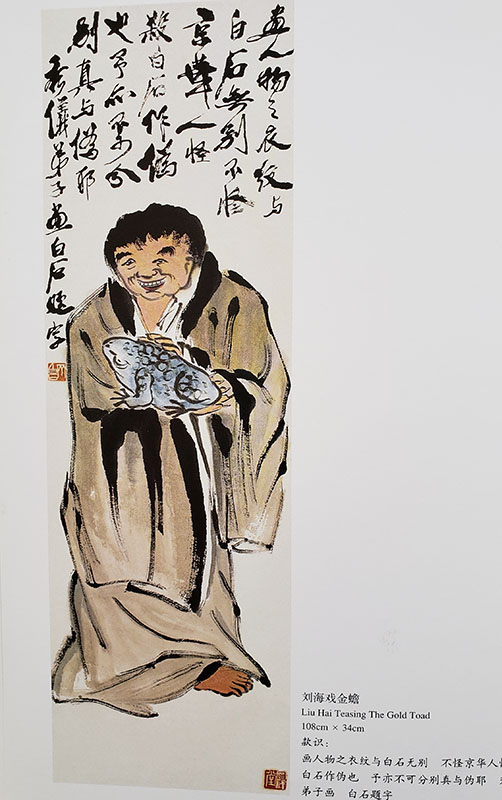 畫人物之衣紋与
白石無别不怪
京華人怪
殺白石作偽
也予亦不可分
别真与偽耶
儀弟子畫白石題字
刘海戏金蟾
Liu Hai Teasing The Gold Toad
108cm × 34cm
款识：
画人物之衣纹与白石无别 不怪京华人
白石作伪也 予亦不可分别真与伪耶
弟子画 白石题字